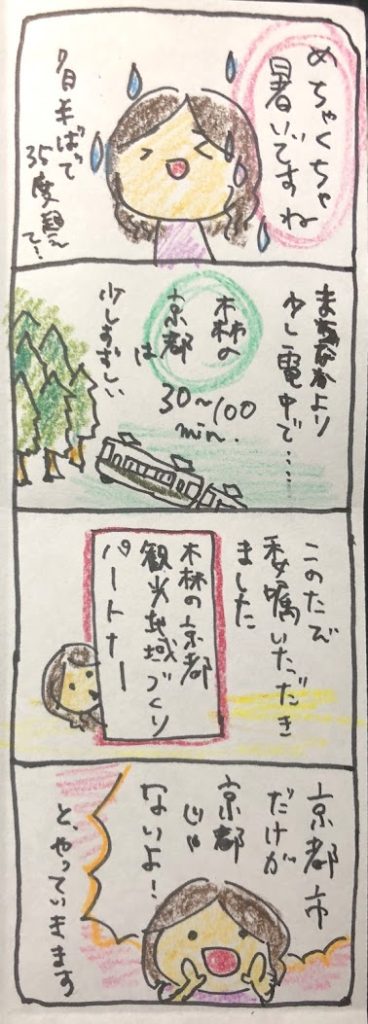 めちゃくちゃ
暑いですね
7月半ばで
35度超えって…
まちなかより
少し電車で……
森の
京都
は
30〜100
min.
少しすずしい
このたび
委嘱いただき
ました
森の京都
観光地域づくり
パートナー
京都市
だけが
京都
じゃ
ないよ!
と、やっていきます